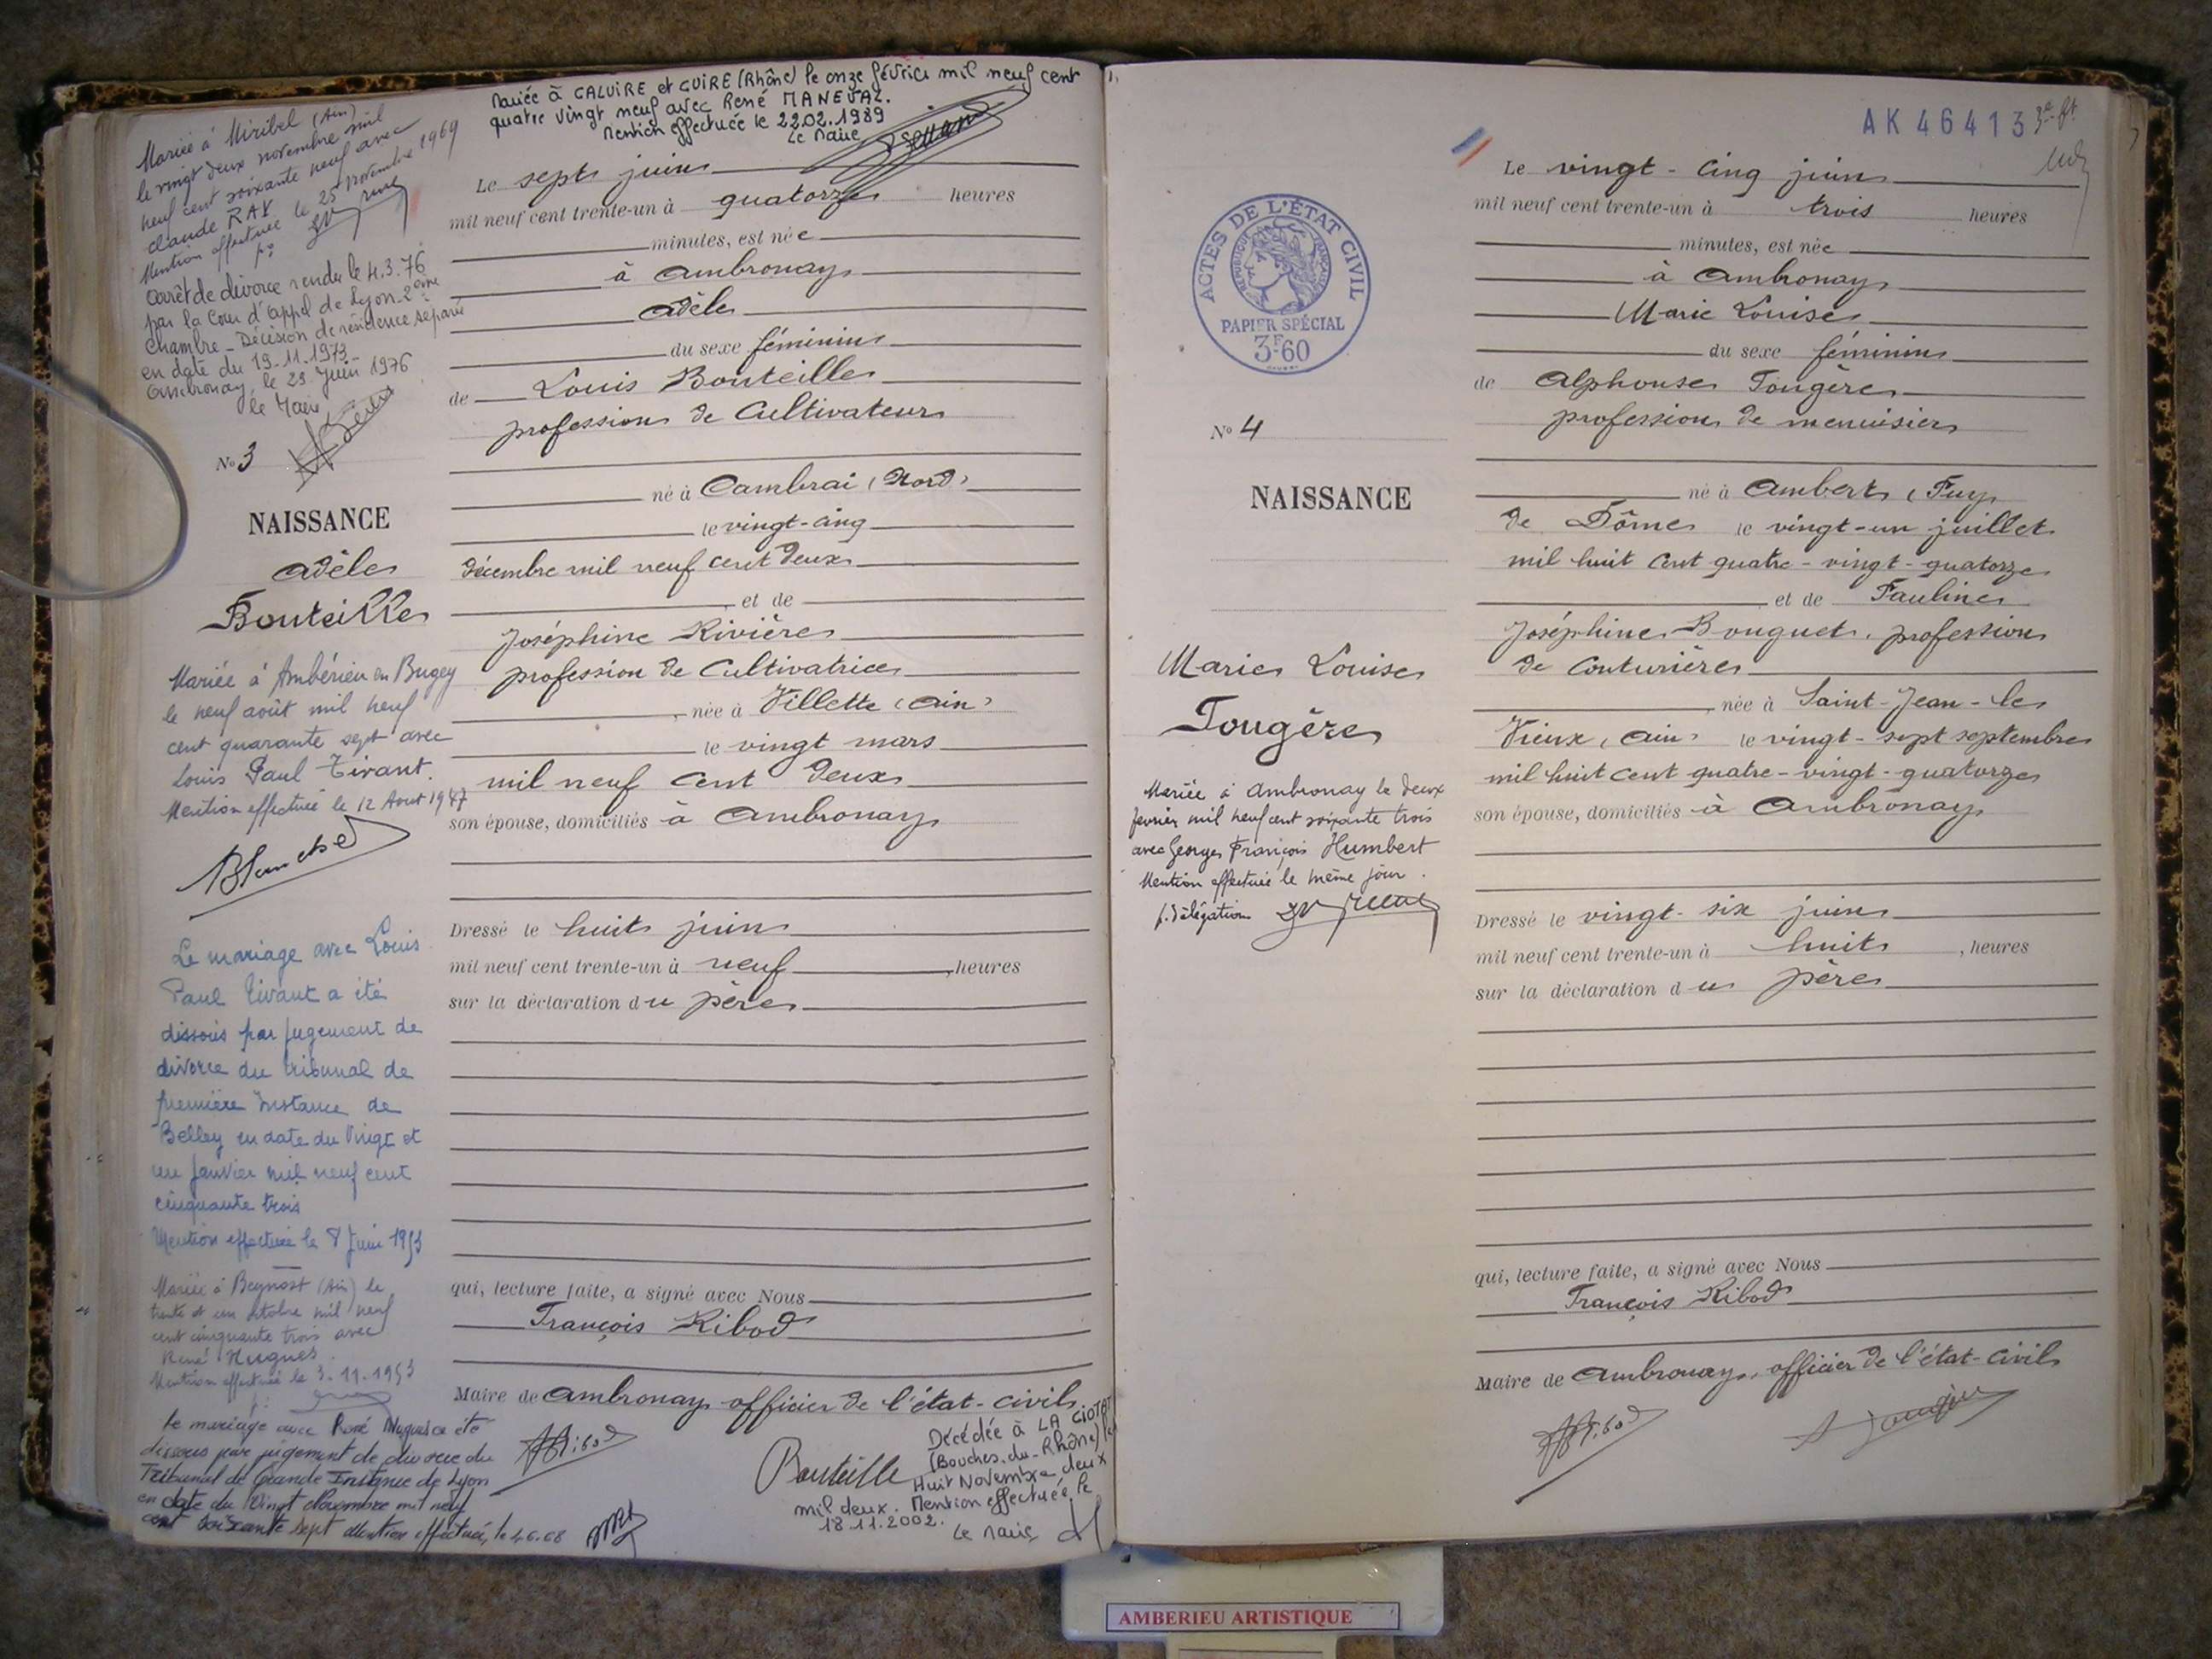 Mariée à Miribel (Ain)
le vingt deux novembre mil
neuf cent soixante neuf avec
Claude RAY
Mention effectuée le 25 novembre 1969
Arrêt de divorce rendu le 4.3.76
par la Cour d'appel de Lyon - 2ème
chambre - Décision de résidence séparée
en date du 19.11.1973 -
Ambronay, le 29 Juin 1976
le Maire
No 3
NAISSANCE
Adèle
Bouteille
Mariée à Ambérieu en Bugey
le neuf août mil neuf
cent quarante sept avec
Louis Paul Tivant.
Mention effectuée le 12 Aout 1947
Blanchet
Le mariage avec Louis
Paul Tivant a été
dissous par jugement de
divorce du tribunal de
première Instance de
Belley en date du Vingt et
un Janvier mil neuf cent
cinquante trois
Mention effectuée le 8 Juin 1953
Mariée à Beynost (Ain) le
trente et un octobre mil neuf
cent cinquante trois avec
René Hugues
Mention effectuée le 3.11.1953
le mariage avec René Hugues a été
dissous par jugement de divorce du
Tribunal de Grande Instance de Lyon
en date du Vingt Novembre mil neuf
cent soixante sept Mention effectuée, le 4.6.68
Mariée à CALUIRE et CUIRE (Rhône) le onze février mil neuf cent
quatre vingt neuf avec René MANEVAL.
Mention effectuée le 22.02.1989
Le Maire
Le sept juin
mil neuf cent trente-un à quatorze heures
minutes, est née
à Ambronay
Adèle
du sexe féminin
de Louis Bouteille
profession de Cultivateur
né à Cambrai (Nord)
le vingt-cinq
décembre mil neuf cent deux
et de
Joséphine Rivière
profession de Cultivatrice
, née à Villette (Ain)
le vingt mars
mil neuf cent deux
son épouse, domiciliés à Ambronay
Dressé le huit juin
mil neuf cent trente-un à neuf , heures
sur la déclaration du père
qui, lecture faite, a signé avec Nous
François Ribod
Maire de Ambronay officier de l'état-civil
Ribod
Bouteille
Décédée à LA CIOTAT
(Bouches-du-Rhône) le
Huit Novembre deux
mil deux. Mention effectuée le
18.11.2002.
Le Maire
AK 46413
ACTES DE L'ÉTAT CIVIL
RÉPUBLIQUE FRANÇAISE
PAPIER SPÉCIAL
3F60
No 4
NAISSANCE
Marie Louise
Fougère
Mariée à Ambronay le deux
février mil neuf cent soixante trois
avec Georges François Humbert
Mention effectuée le même jour.
p. délégation
Le vingt-cinq juin
mil neuf cent trente-un à trois heures
minutes, est née
à Ambronay
Marie Louise
du sexe féminin
de Alphonse Fougère
profession de menuisier
né à Ambert (Puy
de Dôme le vingt-un juillet
mil huit cent quatre-vingt-quatorze
et de Pauline
Joséphine Bouquet, profession
de Couturière
, née à Saint-Jean-le
Vieux (Ain) le vingt-sept septembre
mil huit cent quatre-vingt-quatorze
son épouse, domiciliés à Ambronay
Dressé le vingt-six juin
mil neuf cent trente-un à huit , heures
sur la déclaration du père
qui, lecture faite, a signé avec Nous
François Ribod
Maire de Ambronay, officier de l'état-civil
Ribod
A Fougère
AMBERIEU ARTISTIQUE